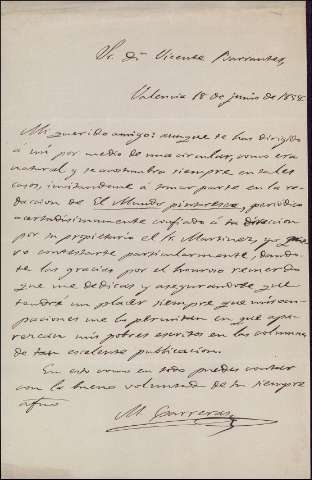 Sr. Dn. Vicente Barrantes,
Valencia 18 de junio de 1858
Mi querido amigo: aunque te has dirigido
á mi por medio de una circular, como era
natural y se acostumbra siempre en tales
casos, invitandome á tomar parte en la re-
daccion de El Mundo pintoresco, periódico
acertadisimamente confiado á tu direccion
por su propietario el Sr. Martinez, yo quie-
ro contestarte particularmente, dando-
te las gracias por el honroso recuerdo
que me dedicas y asegurandote que
tendré un placer siempre que mis ocu-
paciones me lo permitan en que apa-
rezcan mis pobres escritos en las columnas
de tan escelente publicacion.
En esto como en todo puedes contar
con la buena voluntad de tu siempre
afmo
M. Carreras